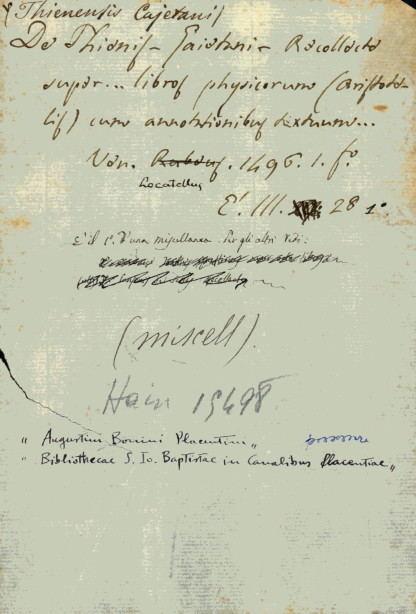 Thienensis Cajetanus
De Thienis - Gaietani - Recollecte
super... libros physicorum (Aristote-
lis) cum annotationibus textuum...
Ven. 1496. 1. f.º
Locatellus
E'. III. 28 1º
E' il 1º d'una miscellanea. Per gli altri vedi:
(miscell).
Hain 15498
" Augustini Bonini Placentini "
" Bibliothecae S. Io. Baptistae in Canalibus Placentiae "